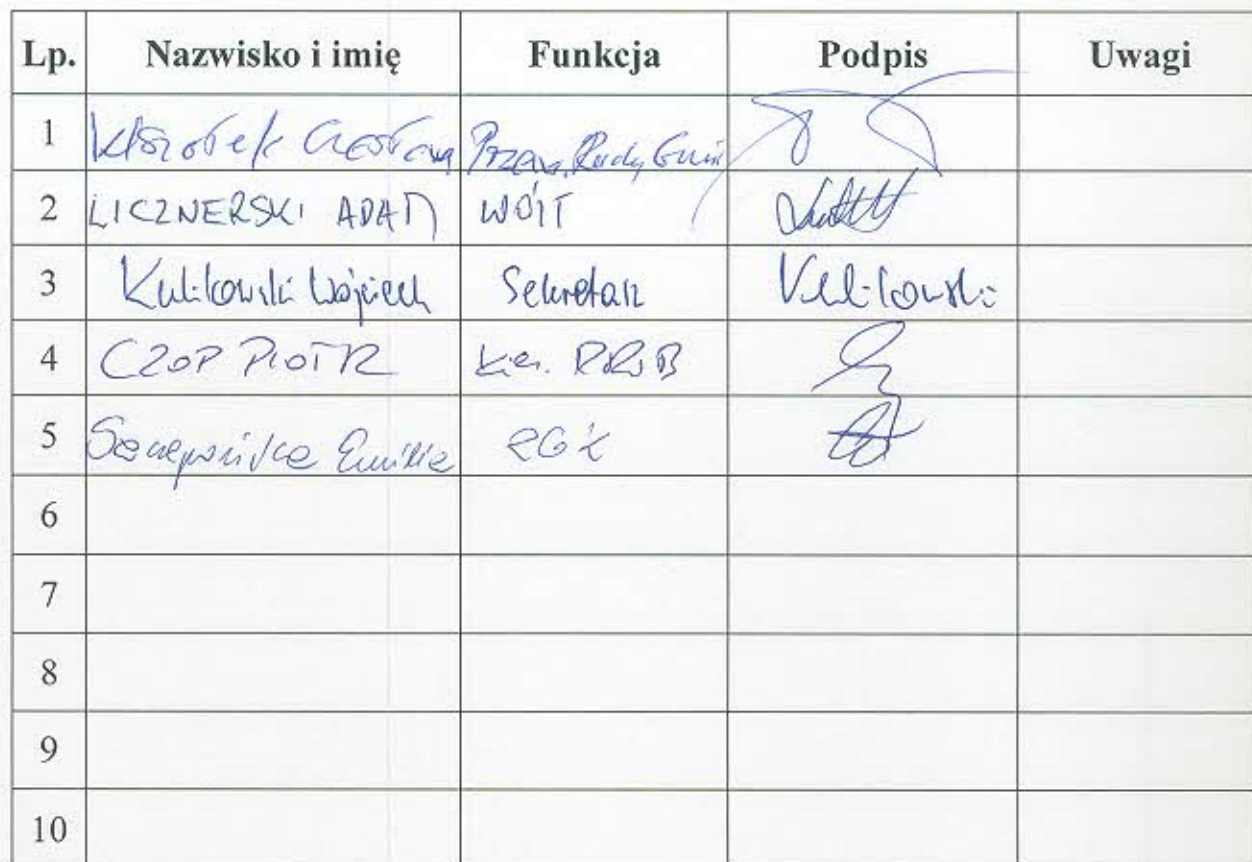 Lp. Nazwisko i imię Funkcja Podpis Uwagi
1 Przew. Rady Gmin
2 LICZNERSKI ADAM WÓJT
3 Kulikowski Wojciech Sekretarz Kulikowski
4 CZOP PIOTR Kier.
5 Szczepańska Emilia
6
7
8
9
10